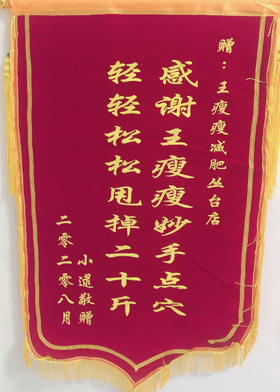 赠：王瘦瘦减肥丛台店
感谢王瘦瘦妙手点穴
轻轻松松甩掉二十斤
小暹敬赠
二零二零八月